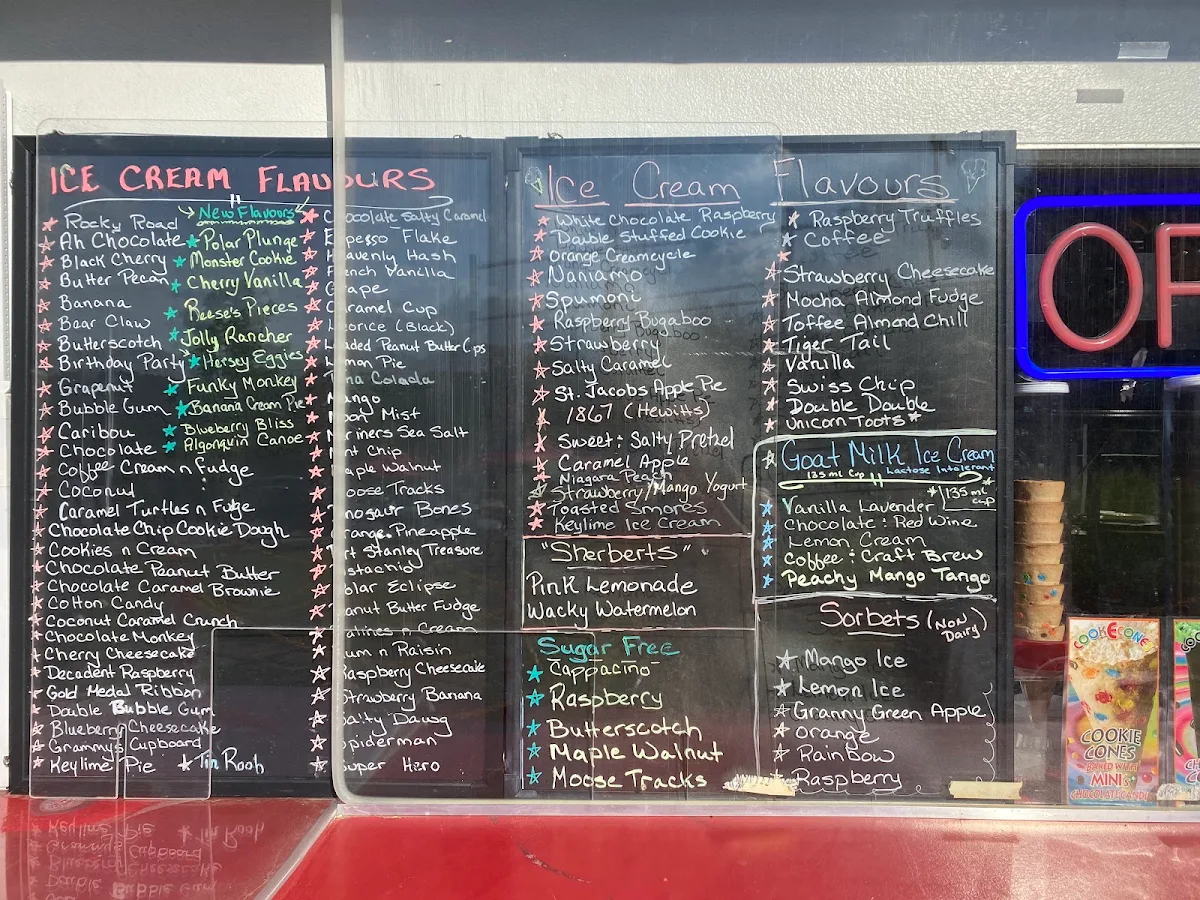 ICE CREAM FLAVOURS
Rocky Road
Ah Chocolate
Black Cherry
Butter Pecan
Banana
Bear Claw
Butterscotch
Birthday Party
Grapenut
Bubble Gum
Caribou
Chocolate
Coffee Cream n Fudge
Coconut
Caramel Turtles n Fudge
Chocolate Chip Cookie Dough
Cookies n Cream
Chocolate Peanut Butter
Chocolate Caramel Brownie
Cotton Candy
Coconut Caramel Crunch
Chocolate Monkey
Cherry Cheesecake
Decadent Raspberry
Gold Medal Ribbon
Double Bubble Gum
Blueberry Cheesecake
Grammy's Cupboard
Keylime Pie
Tin Roof
New Flavours
Polar Plunge
Monster Cookie
Cherry Vanilla
Reese's Pieces
Jolly Rancher
Hersey Eggies
Funky Monkey
Banana Cream Pie
Blueberry Bliss
Algonquin Canoe
Chocolate Salty Caramel
Flake
Heavenly Hash
French Vanilla
Grape
Caramel Cup
(Black)
Peanut Butter Cups
Pie
Colada
Mango
Mist
Sea Salt
Chip
Walnut
Tracks
Bones
Orange Pineapple
Stanley Treasure
Eclipse
Butter Fudge
n Cream
n Raisin
Raspberry Cheesecake
Strawberry Banana
Salty Dawg
Spiderman
Super Hero
Ice Cream Flavours
White Chocolate Raspberry
Double Stuffed Cookie
Orange Creamcycle
Naniamo
Spumoni
Raspberry Bugaboo
Strawberry
Salty Caramel
St. Jacobs Apple Pie
1867 (Hewitts)
Sweet : Salty Pretzel
Caramel Apple
Niagara Peach
Strawberry/Mango Yogurt
Toasted Smores
Keylime Ice Cream
"Sherberts"
Pink Lemonade
Wacky Watermelon
Sugar Free
Cappacino
Raspberry
Butterscotch
Maple Walnut
Moose Tracks
Raspberry Truffles
Coffee
Strawberry Cheesecake
Mocha Almond Fudge
Toffee Almond Chill
Tiger Tail
Vanilla
Swiss Chip
Double Double
Unicorn Toots
Goat Milk Ice Cream
135 ml Cup
Lactose Intolerant
135 ml
cup
Vanilla Lavender
Chocolate : Red Wine
Lemon Cream
Coffee : Craft Brew
Peachy Mango Tango
Sorbets (Non
Dairy)
Mango Ice
Lemon Ice
Granny Green Apple
Orange
Rainbow
Raspberry
COOKECONE
COOKIE
CONES
BAKED WITH
MINI